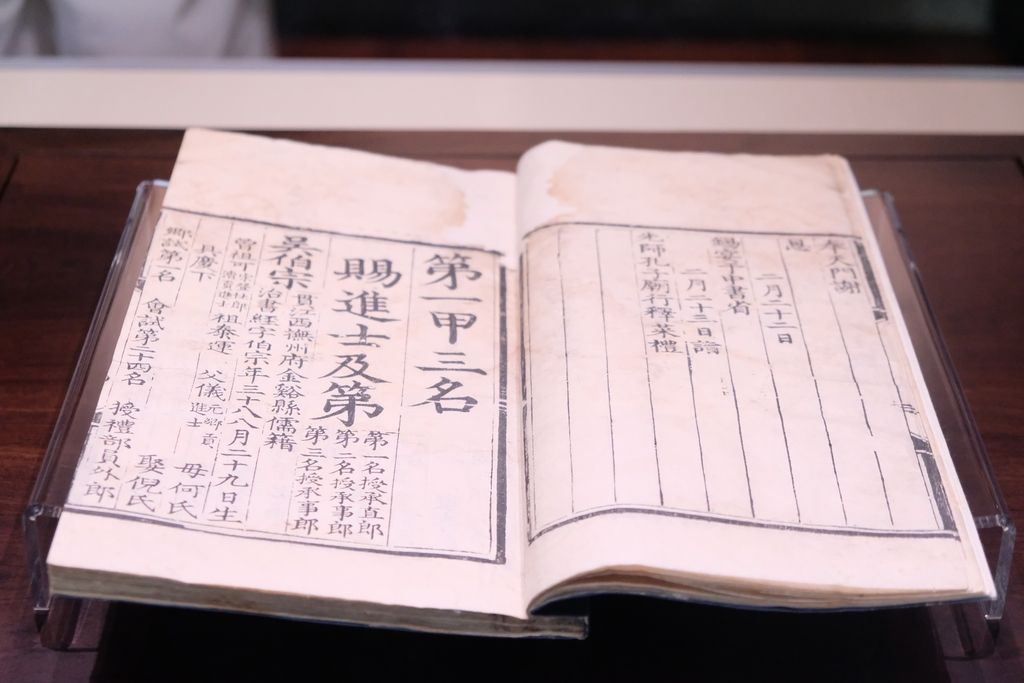 奉天門謝
恩
二月二十二日
錫宴于中書省
二月二十三日詣
先師孔子廟行釋菜禮
第一甲三名
賜進士及第
第一名授承直郎
第二名授承事郎
第三名授承事郎
吳伯宗
貫江西撫州府金谿縣儒籍
治書經字伯宗年三十八八月二十九日生
曾祖可
祖泰運
父儀元鄉貢進士
母何氏
具慶下
娶倪氏
鄉試第一名
會試第二十四名
授禮部員外郎